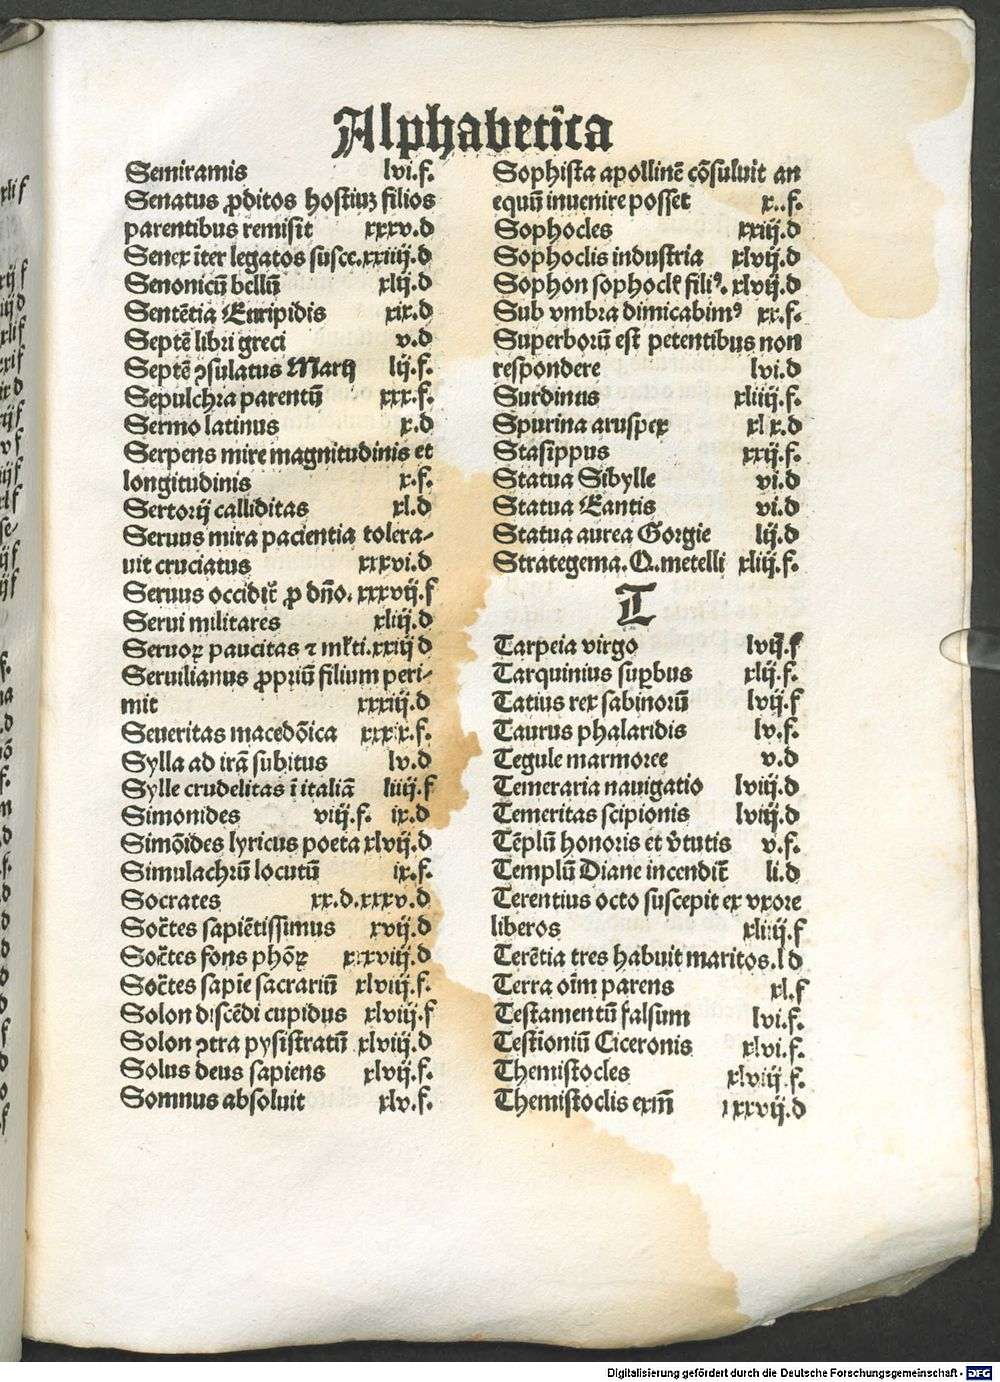 Alphabetica
Semiramis lvi.f.
Senatus ꝓditos hostiuꝫ filios
parentibus remisit xxxv.d
Senex īter legatos susce.xxiiij.d
Senonicū bellū xlij.d
Sentētia Euripidis xix.d
Septē libri greci v.d
Septē ꝯsulatus Marij lij.f.
Sepulchra parentū xxx.f.
Sermo latinus x.d
Serpens mire magnitudinis et
longitudinis x.f.
Sertorij calliditas xl.d
Seruus mira pacientia tolera-
uit cruciatus xxxvi.d
Seruus occidit̄ ꝓ dño. xxxvij.f
Serui militares xliij.d
Seruoꝝ paucitas ⁊ mĺti.xxiij d
Seruilianus ꝓpriū filium peri-
mit xxxiij.d
Seueritas macedōica
Sylla ad irā subitus lv.d
Sylle crudelitas ī italiā liiij.f
Simonides viij.f. ix.d
Simōides lyricus poeta xlvij.d
Simulachrū locutū ix.f.
Socrates xx.d.xxxv.d
Soc̄tes sapiētissimus xvij.d
Soc̄tes fons phōꝝ xxxviij.d
Soc̄tes sapīe sacrariū xlviij.f.
Solon discēdi cupidus xlviij.f
Solon ꝯtra pysistratū xlviij.d
Solus deus sapiens xlvij.f.
Somnus absoluit xlv.f.
Sophista apollinē cōsuluit an
equū inuenire posset x..f.
Sophocles xxiij.d
Sophoclis industria xlvij.d
Sophon sophocĺ filiꝰ. xlvij.d
Sub vmbra dimicabimꝰ xx.f.
Superborū est petentibus non
respondere lvi.d
Surdinus xliiij.f.
Spurina aruspex xl x.d
Stasippus xxij.f.
Statua Sibylle vi.d
Statua Eantis vi.d
Statua aurea Gorgie lij.d
Strategema.Q.metelli xliij.f.
T
Tarpeia virgo lvij.f
Tarquinius suꝑbus xlij.f.
Tatius rex sabinorū lvij.f
Taurus phalaridis lv.f.
Tegule marmoree v.d
Temeraria nauigatio lviij.d
Temeritas scipionis lviij.d
Tēplū honoris et v̄tutis v.f.
Templū Diane incendit̄ li.d
Terentius octo suscepit ex vxore
liberos xliiij.f
Terētia tres habuit maritos.l d
Terra oīm parens xl.f
Testamentū falsum lvi.f.
Testioniū Ciceronis xlvi.f.
Themistocles xlviij.f.
Themistoclis exm̄ xxvij.d
Digitalisierung gefördert durch die Deutsche Forschungsgemeinschaft - DFG